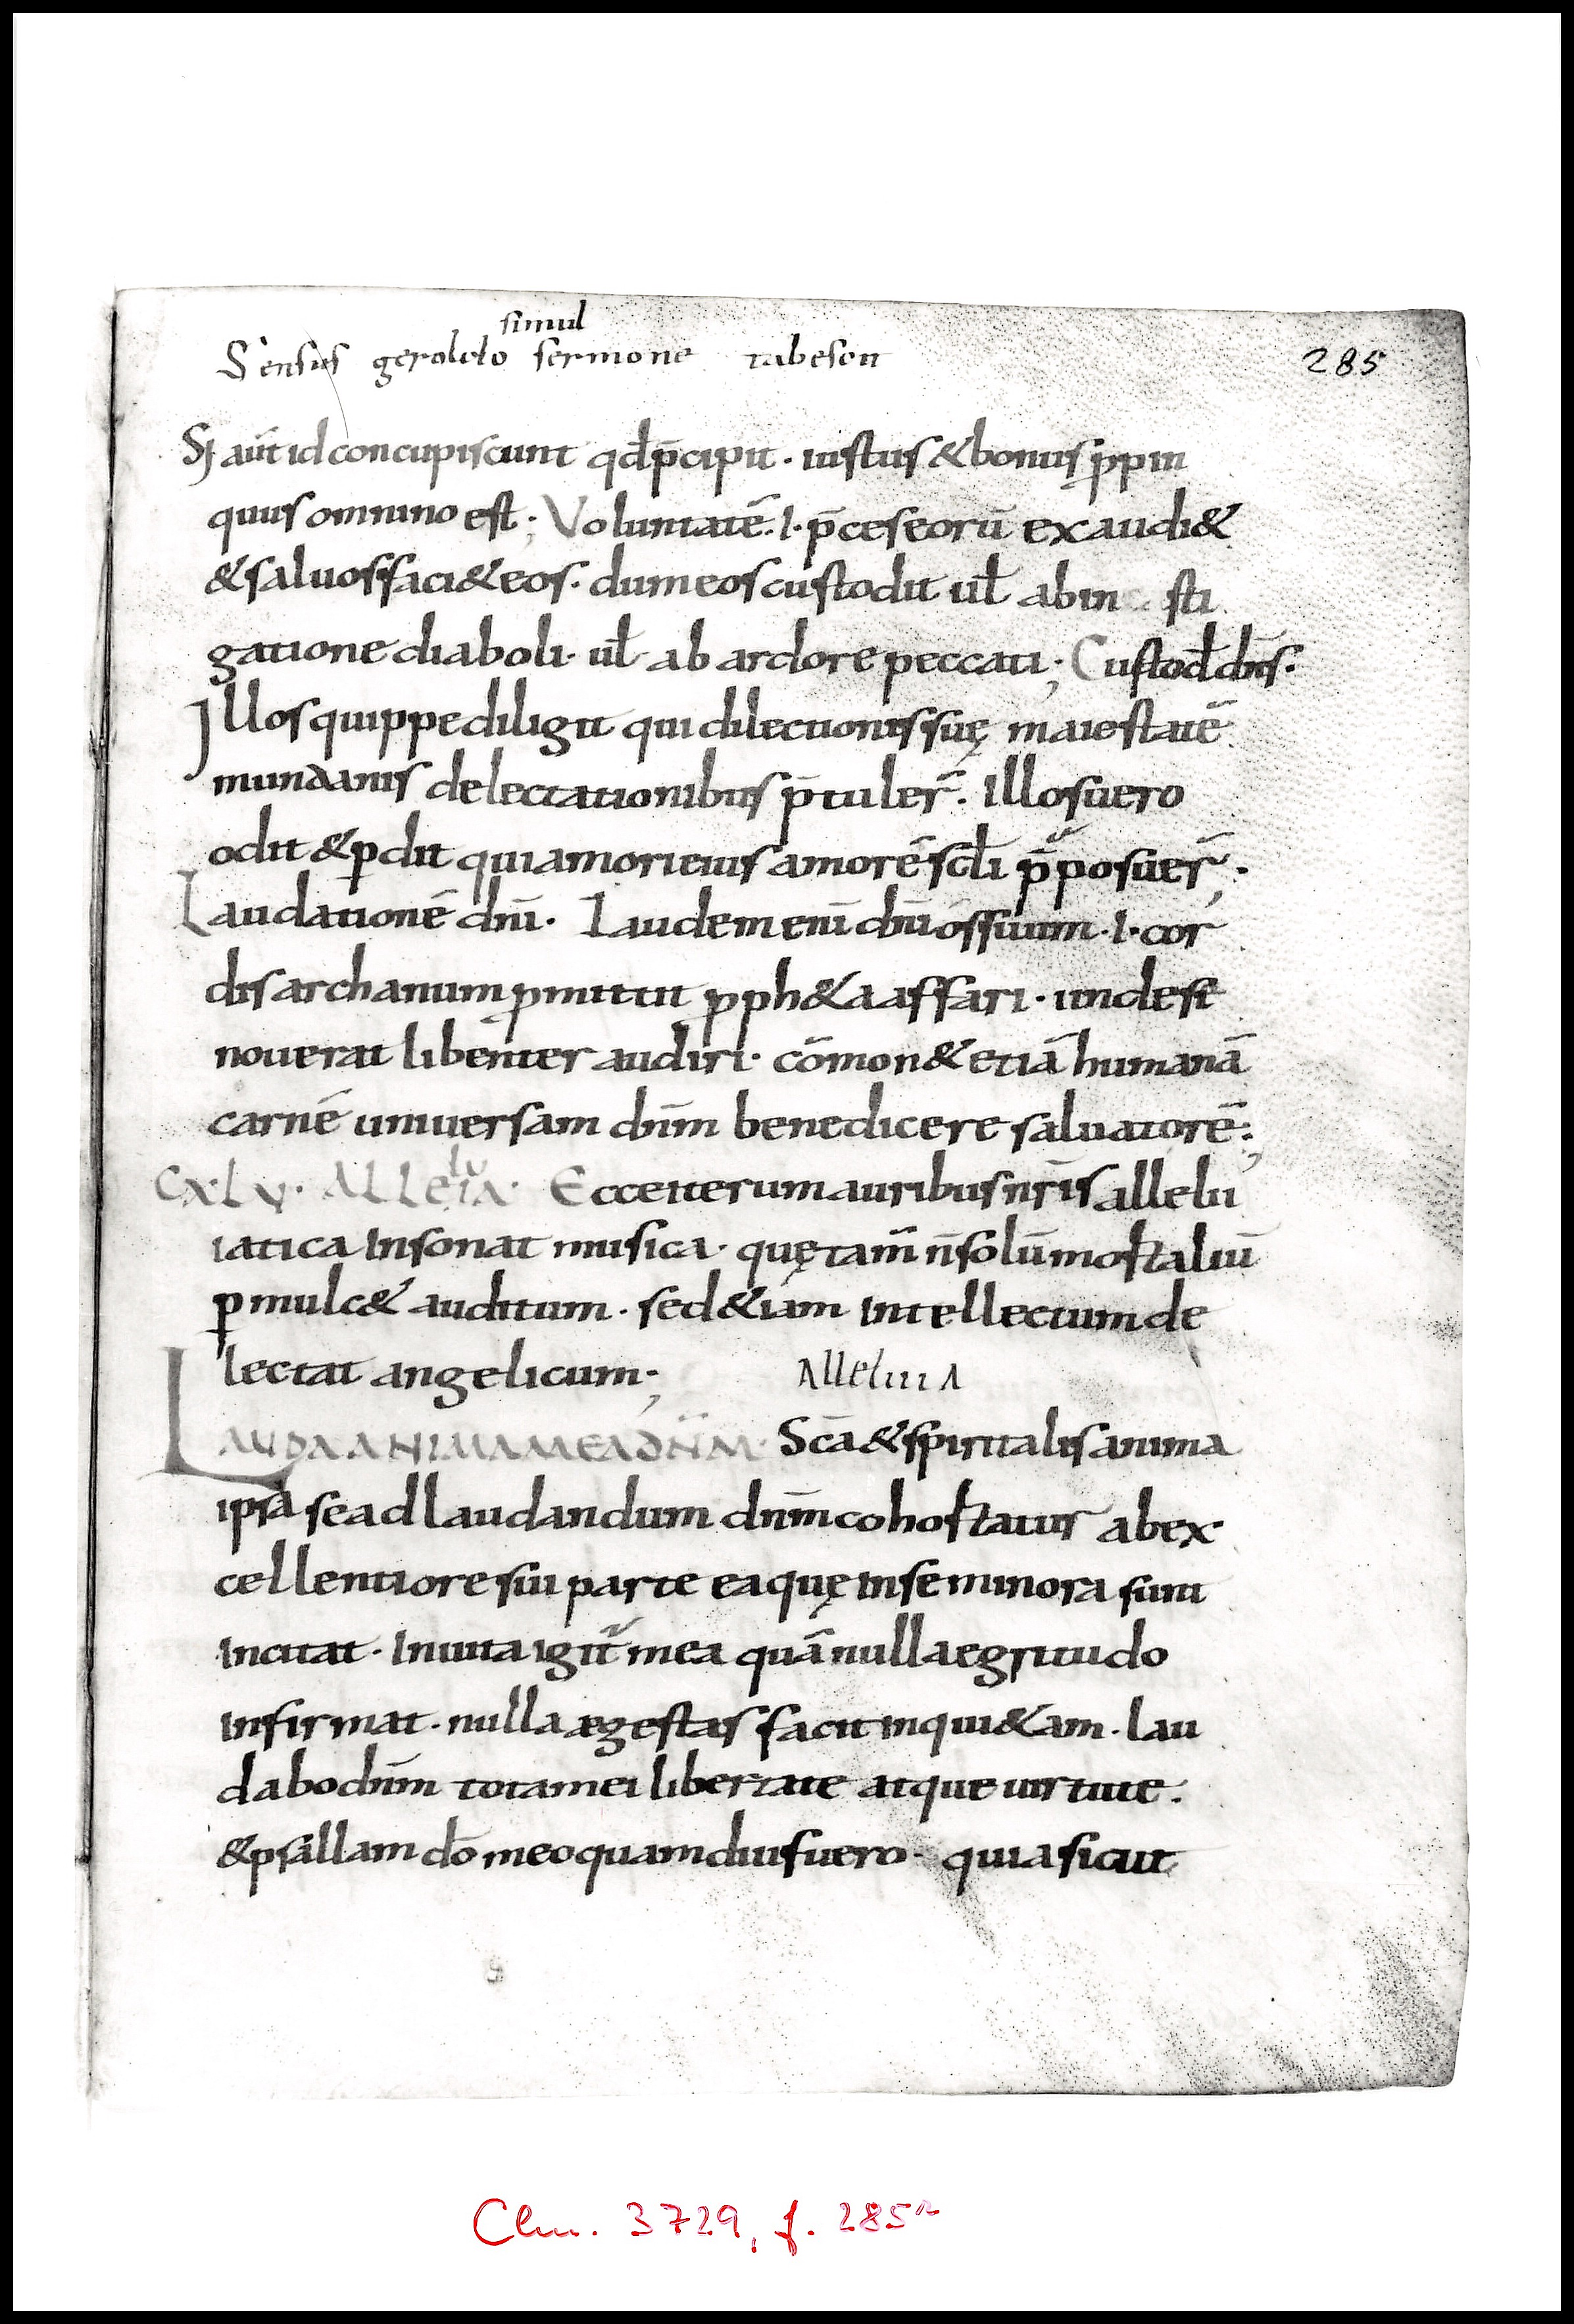 simul
Sensus geraldo sermone tabescit
285
Si aūt id concupiscunt qđ p̄cipit · iustus & bonus ꝓpin
quus omnino est ; Voluntatē · l · p̄ces eorū exaudi&
& saluos faci& eos · dum eos custodit uł ab in sti
gatione diaboli · uł ab ardore peccati ; Custođ dn̄s ·
Illos quippe diligit qui dilectionis suę maiestatē
mundanis delectationibus p̄tuler̄ · Illos uero
odit & ꝑdit qui amori eius amorē scłi p̄posuer̄ ·
Laudationē dn̄i · Laudem enī dn̄i os suum · l · cor
dis archanum ꝓmittit ꝓph&a affari · unde se
nouerat libenter audiri · cōmon& etiā humanā
carnē uniuersam dn̄m benedicere saluatorē ;
lu
CXLV · ALLEIA · Ecce iterum auribus nr̄is allelu
iatica insonat musica · quę tam̄ n̄ solū mortaliū
ꝑmulc& auditum · sed & iam intellectum de
lectat angelicum ; Alleluia
LAUDA ANIMA MEA DN̄M · Sc̄a & spiritalis anima
ipsa se ad laudandum dn̄m cohortatur ab ex
cellentiore sui parte ea quę in se minora sunt
incitat · In uita igit̄ mea quā nulla egritudo
infirmat · nulla ægestas facit inqui&am · lau
dabo dn̄m tota mei libertate atque uirtute ·
& psallam dō meo quamdiu fuero · quia sicut
Clm. 3729, f. 285r